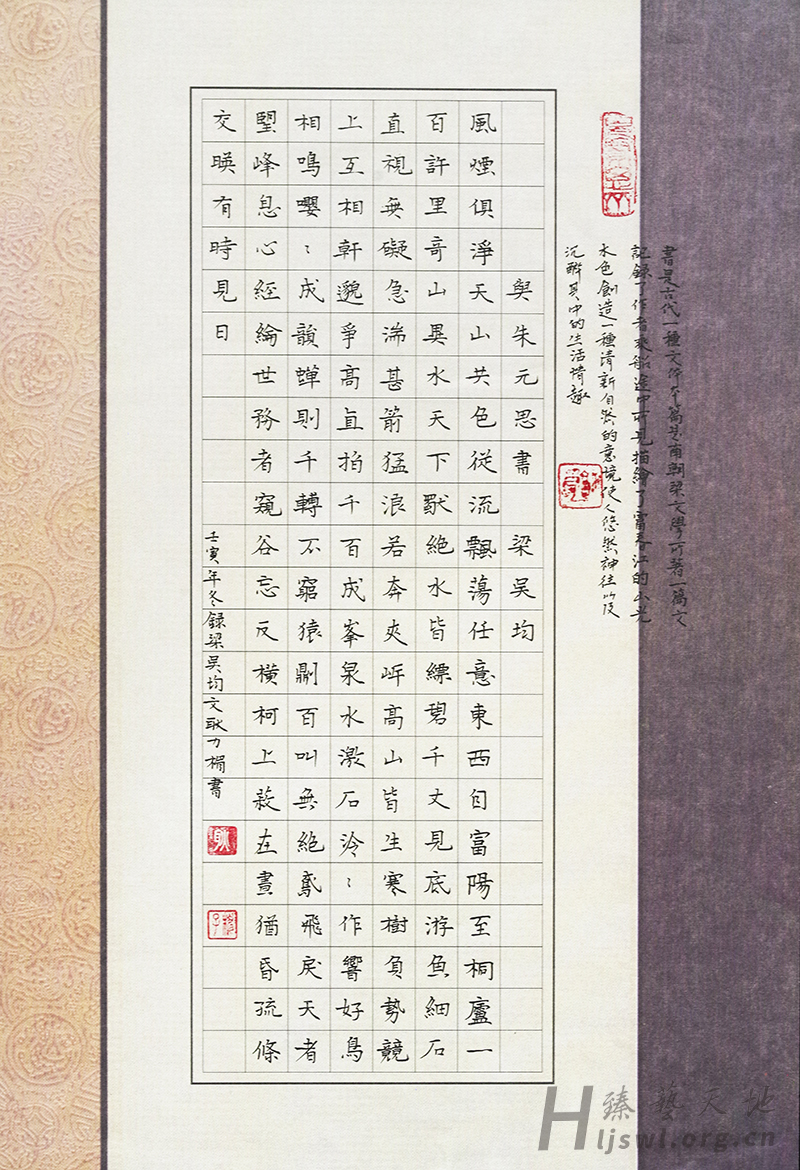 書是古代一種文体本篇是南朝梁文學所著一篇文
記録了作者乘船途中所見描繪了富春江的山光
水色創造一種清新自然的意境使人悠然神往以及
沉醉其中的生活情趣
與朱元思書 梁吳均
風煙俱淨天山共色從流飄蕩任意東西自富陽至桐廬一
百許里奇山異水天下獨絕水皆縹碧千丈見底游魚細石
直視無礙急湍甚箭猛浪若奔夾岸高山皆生寒樹負勢競
上互相軒邈爭高直指千百成峯泉水激石泠〻作響好鳥
相鳴嚶〻成韻蟬則千轉不窮猿則百叫無絕鳶飛戾天者
望峰息心經綸世務者窺谷忘反橫柯上蔽在晝猶昏疏條
交暎有時見日
壬寅年冬録梁吳均文耿力楣書
臻藝天地
Hljswl.org.cn